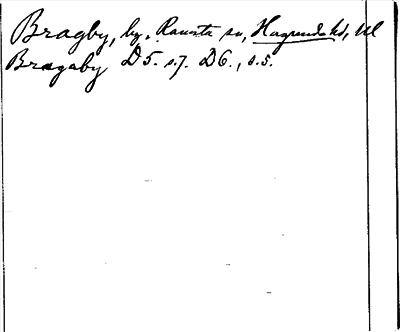 Bragby, by, Ramsta sn, Hagunda hd, Ul
Bragaby D5. s.7. D6., s.5.